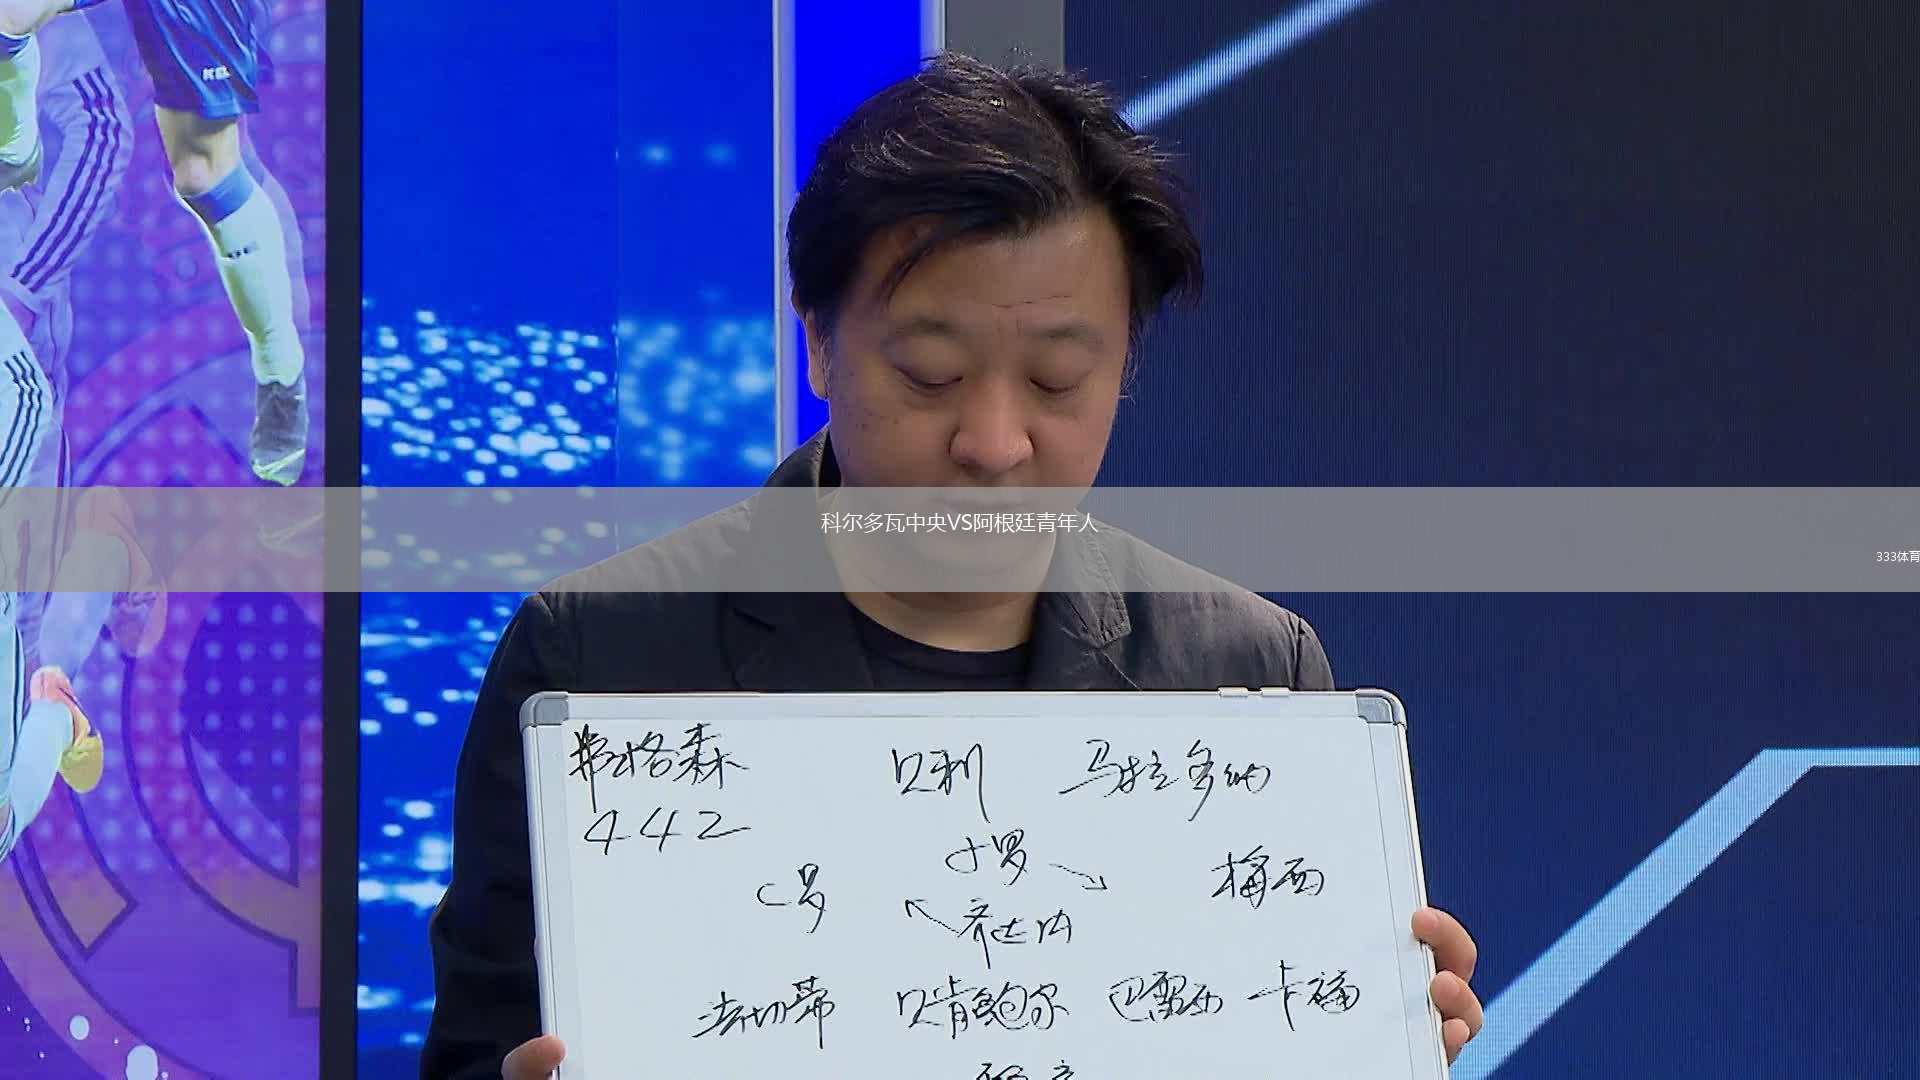 科尔多瓦中央VS阿根廷青年人
333体育
弗格森 贝利 马拉多纳
442
小罗
C罗 梅西
齐达内
法切蒂 贝肯鲍尔 巴雷西 卡福